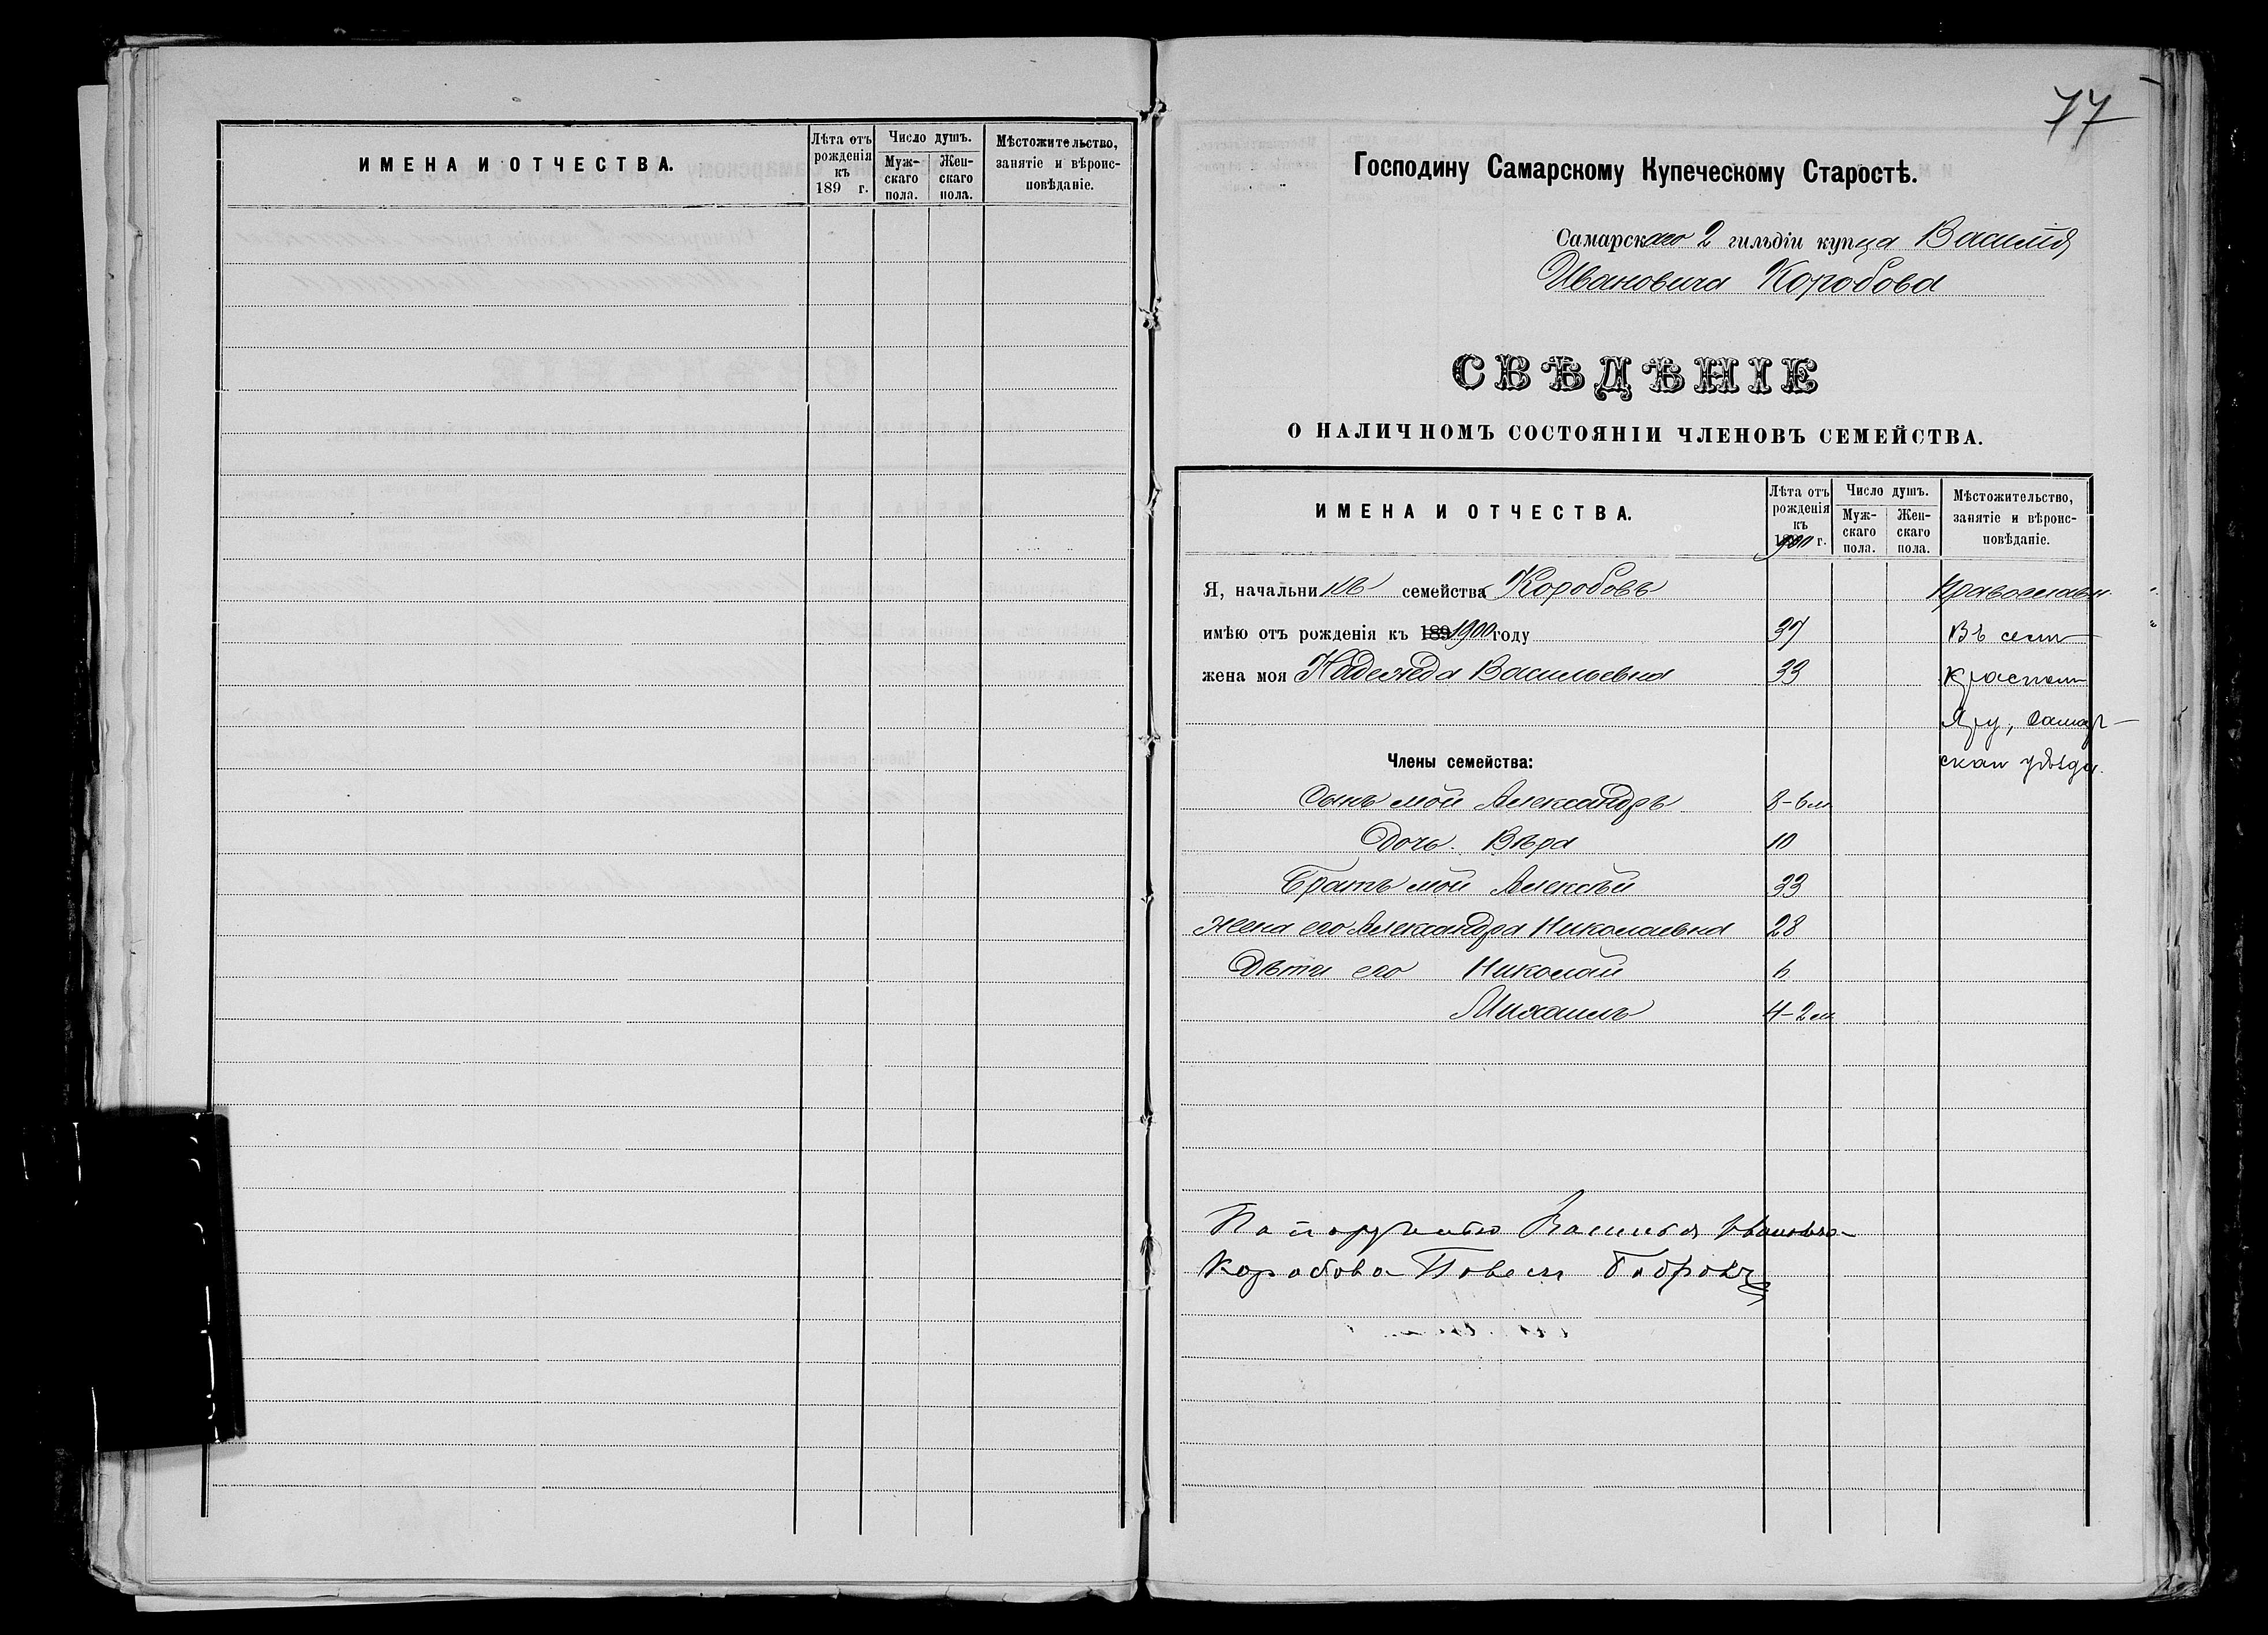 ИМЕНА И ОТЧЕСТВА.
Лѣта отъ рожденія къ 189 г.
Число душъ.
Муж-скаго пола.
Жен-скаго пола.
Мѣстожительство, занятіе и вѣроис-повѣданіе.
77
Господину Самарскому Купеческому Старостѣ.
Самарскаго 2 гильдіи купца Василія
Ивановича Коробова
СВѢДѢНІЕ
О НАЛИЧНОМЪ СОСТОЯНІИ ЧЛЕНОВЪ СЕМЕЙСТВА.
ИМЕНА И ОТЧЕСТВА.
Лѣта отъ рожденія къ 1900 г.
Число душъ.
Муж-скаго пола.
Жен-скаго пола.
Мѣстожительство, занятіе и вѣроис-повѣданіе.
Я, начальникъ семейства Коробовъ Православн.
имѣю отъ рожденія къ 189 1900 году 37 Въ селѣ
жена моя Надежда Васильевна 33 Красном
Яру, Самар-
Члены семейства: скаго уѣзда.
Сынъ мой Александръ 8-6м
Дочь Вѣра 10
Братъ мой Алексѣй 33
Жена его Александра Николаевна 28
Дѣти его Николай 6
Михаилъ 4-2м
По Василья Иванова
Коробова Бобровъ